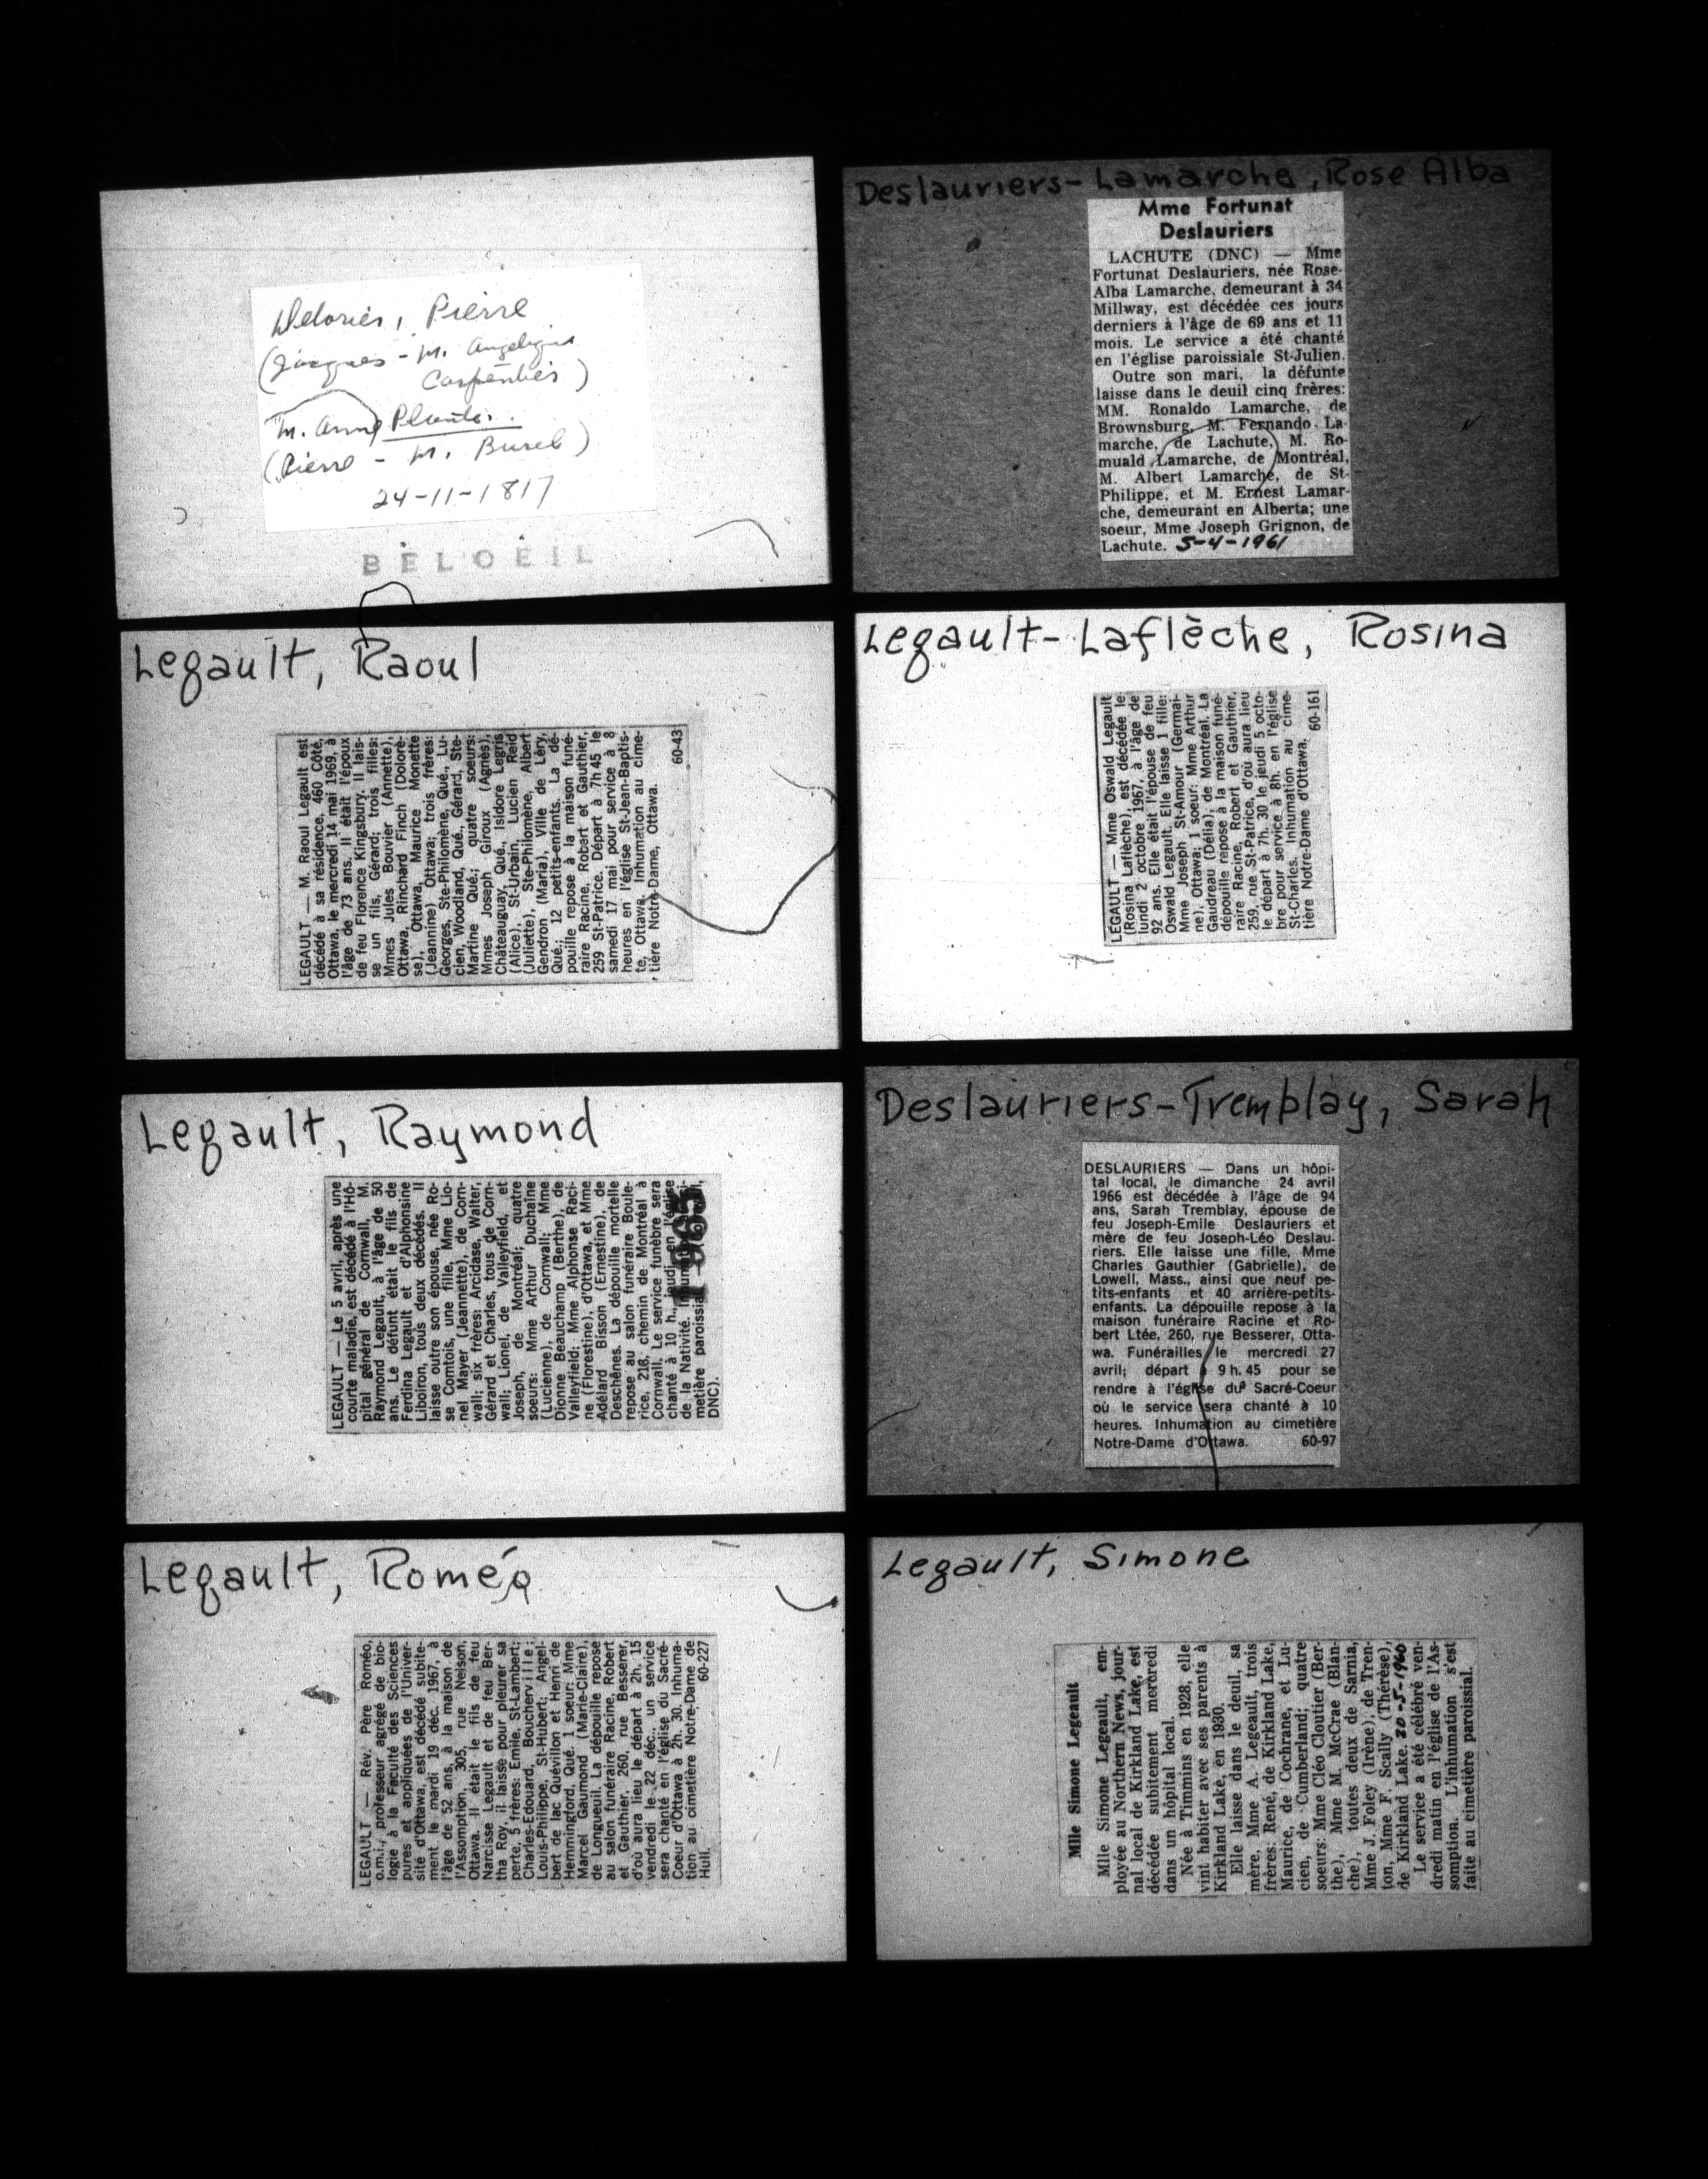 Pierre
(Jacques - M. Angélique
Carpentier)
M. Anne Plante
(Pierre - M. Burel)
24-11-1817
BELOEIL
Deslauriers-Lamarche, Rose Alba
Mme Fortunat
Deslauriers
LACHUTE (DNC) — Mme
Fortunat Deslauriers, née Rose-
Alba Lamarche, demeurant à 34
Millway, est décédée ces jours
derniers à l'âge de 69 ans et 11
mois. Le service a été chanté
en l'église paroissiale St-Julien.
Outre son mari, la défunte
laisse dans le deuil cinq frères:
MM. Ronaldo Lamarche, de
Brownsburg, M. Fernando La-
marche, de Lachute, M. Ro-
muald Lamarche, de Montréal,
M. Albert Lamarche, de St-
Philippe, et M. Ernest Lamar-
che, demeurant en Alberta; une
soeur, Mme Joseph Grignon, de
Lachute. 5-4-1961
Legault, Raoul
LEGAULT — M. Raoul Legault est
décédé à sa résidence, 460 Côté,
Ottawa, le mercredi 14 mai 1969, à
l'âge de 73 ans. Il était l'époux
de feu Florence Kingsbury. Il lais-
se un fils, Gérard; trois filles:
Mmes Jules Bouvier (Annette),
Ottawa, Rinchard Finch (Dolorè-
se), Ottawa, Maurice Monette
(Jeannine) Ottawa; trois frères:
Georges, Ste-Philomène, Qué., Lu-
cien, Woodland, Qué, Gérard, Ste-
Martine Qué.; quatre soeurs:
Mmes Joseph Giroux (Agnès),
Châteauguay, Qué, Isidore Legris
(Alice), St-Urbain, Lucien Reid
(Juliette), Ste-Philomène, Albert
Gendron (Maria), Ville de Léry,
Qué.; 12 petits-enfants. La dé-
pouille repose à la maison funé-
raire Racine, Robert et Gauthier,
259 St-Patrice. Départ à 7h 45 le
samedi 17 mai pour service à 8
heures en l'église St-Jean-Baptis-
te, Ottawa. Inhumation au cime-
tière Notre-Dame, Ottawa.
60-43
Legault-Laflèche, Rosina
LEGAULT — Mme Oswald Legault
(Rosina Laflèche), est décédée le
lundi 2 octobre 1967, à l'âge de
92 ans. Elle était l'épouse de feu
Oswald Legault. Elle laisse 1 fille:
Mme Joseph St-Amour (Germai-
ne), Ottawa; 1 soeur: Mme Arthur
Gaudreau (Délia), de Montréal. La
dépouille repose à la maison funé-
raire Racine, Robert et Gauthier,
259, rue St-Patrice, d'où aura lieu
le départ à 7h. 30 le jeudi 5 octo-
bre pour service à 8h. en l'église
St-Charles. Inhumation au cime-
tière Notre-Dame d'Ottawa.
60-161
Legault, Raymond
LEGAULT — Le 5 avril, après une
courte maladie, est décédé à l'Hô-
pital général de Cornwall, M.
Raymond Legault, à l'âge de 50
ans. Le défunt était le fils de
Ferdina Legault et d'Alphonsine
Liboiron, tous deux décédés. Il
laisse outre son épouse, née Ro-
se Comtois, une fille, Mme Lio-
nel Mayer (Jeannette), de Corn-
wall; six frères: Arcidase, Walter,
Gérard et Charles, tous de Corn-
wall; Lionel, de Valleyfield, et
Joseph, de Montréal; quatre
soeurs: Mme Arthur Duchaine
(Lucienne), de Cornwall; Mme
Dionne Beauchamp (Berthe), de
Valleyfield; Mme Alphonse Raci-
ne (Florestine), d'Ottawa, et Mme
Adélard Bisson (Ernestine), de
Deschênes. La dépouille mortelle
repose au salon funéraire Boule-
rice, 218, chemin de Montréal à
Cornwall. Le service funèbre sera
chanté à 10 h., jeudi en l'église
de la Nativité.
metière paroissial
DNC).
1965
Deslauriers-Tremblay, Sarah
DESLAURIERS — Dans un hôpi-
tal local, le dimanche 24 avril
1966 est décédée à l'âge de 94
ans, Sarah Tremblay, épouse de
feu Joseph-Emile Deslauriers et
mère de feu Joseph-Léo Deslau-
riers. Elle laisse une fille, Mme
Charles Gauthier (Gabrielle), de
Lowell, Mass., ainsi que neuf pe-
tits-enfants et 40 arrière-petits-
enfants. La dépouille repose à la
maison funéraire Racine et Ro-
bert Ltée, 260, rue Besserer, Otta-
wa. Funérailles le mercredi 27
avril; départ à 9 h. 45 pour se
rendre à l'église du Sacré-Coeur
où le service sera chanté à 10
heures. Inhumation au cimetière
Notre-Dame d'Ottawa. 60-97
Legault, Roméo
LEGAULT — Rév. Père Roméo,
o.m.i., professeur agrégé de bio-
logie à la Faculté des Sciences
pures et appliquées de l'Univer-
sité d'Ottawa, est décédé subite-
ment le mardi 19 déc. 1967, à
l'âge de 52 ans, à la maison de
l'Assomption, 305, rue Nelson,
Ottawa. Il était le fils de feu
Narcisse Legault et de feu Ber-
tha Roy, il laisse pour pleurer sa
perte, 5 frères: Emile, St-Lambert;
Charles-Edouard, Boucherville;
Louis-Philippe, St-Hubert; Angel-
bert de lac Quévillon et Henri de
Hemmingford, Qué. 1 soeur: Mme
Marcel Gaumond (Marie-Claire),
de Longueuil. La dépouille repose
au salon funéraire Racine, Robert
et Gauthier, 260, rue Besserer,
d'où aura lieu le départ à 2h. 15
vendredi le 22 déc., un service
sera chanté en l'église du Sacré-
Coeur d'Ottawa à 2h. 30. Inhuma-
tion au cimetière Notre-Dame de
Hull. 60-227
Legault, Simone
Mlle Simone Legeault
Mlle Simone Legeault, em-
ployée au Northern News, jour-
nal local de Kirkland Lake, est
décédée subitement mercredi
dans un hôpital local.
Née à Timmins en 1928, elle
vint habiter avec ses parents à
Kirkland Lake, en 1930.
Elle laisse dans le deuil, sa
mère, Mme A. Legeault, trois
frères: René, de Kirkland Lake,
Maurice, de Cochrane, et Lu-
cien, de Cumberland; quatre
soeurs: Mme Cléo Cloutier (Ber-
the), Mme M. McCrae (Blan-
che), toutes deux de Sarnia,
Mme J. Foley (Irène), de Tren-
ton, Mme F. Scally (Thérèse),
de Kirkland Lake. 20-5-1960
Le service a été célébré ven-
dredi matin en l'église de l'As-
somption. L'inhumation s'est
faite au cimetière paroissial.